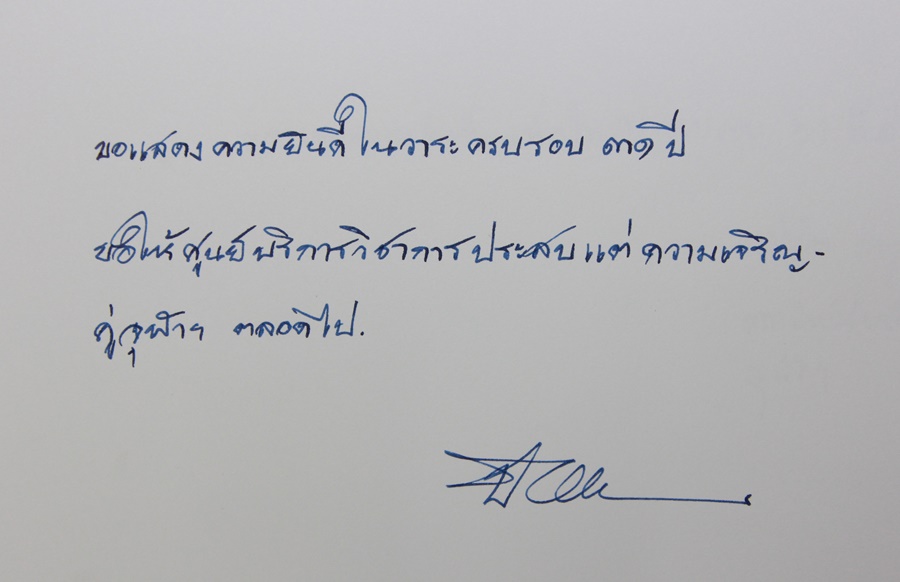 ขอแสดงความยินดี ในวาระครบรอบ ๓๑ ปี
ขอให้ศูนย์บริการวิชาการประสบแต่ความเจริญ
คู่จุฬาฯ ตลอดไป.